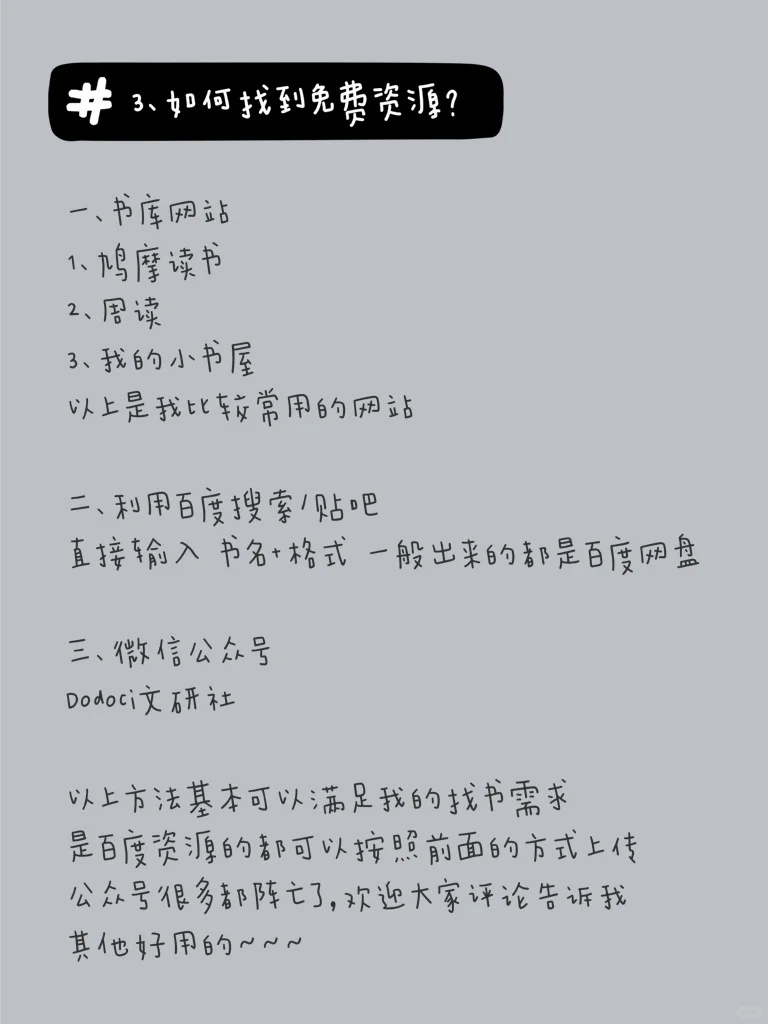 # 3、如何找到免费资源?
一、书库网站
1、鸠摩读书
2、周读
3、我的小书屋
以上是我比较常用的网站
二、利用百度搜索/贴吧
直接输入 书名+格式 一般出来的都是百度网盘
三、微信公众号
Dodoci文研社
以上方法基本可以满足我的找书需求
是百度资源的都可以按照前面的方式上传
公众号很多都阵亡了,欢迎大家评论告诉我
其他好用的~~~